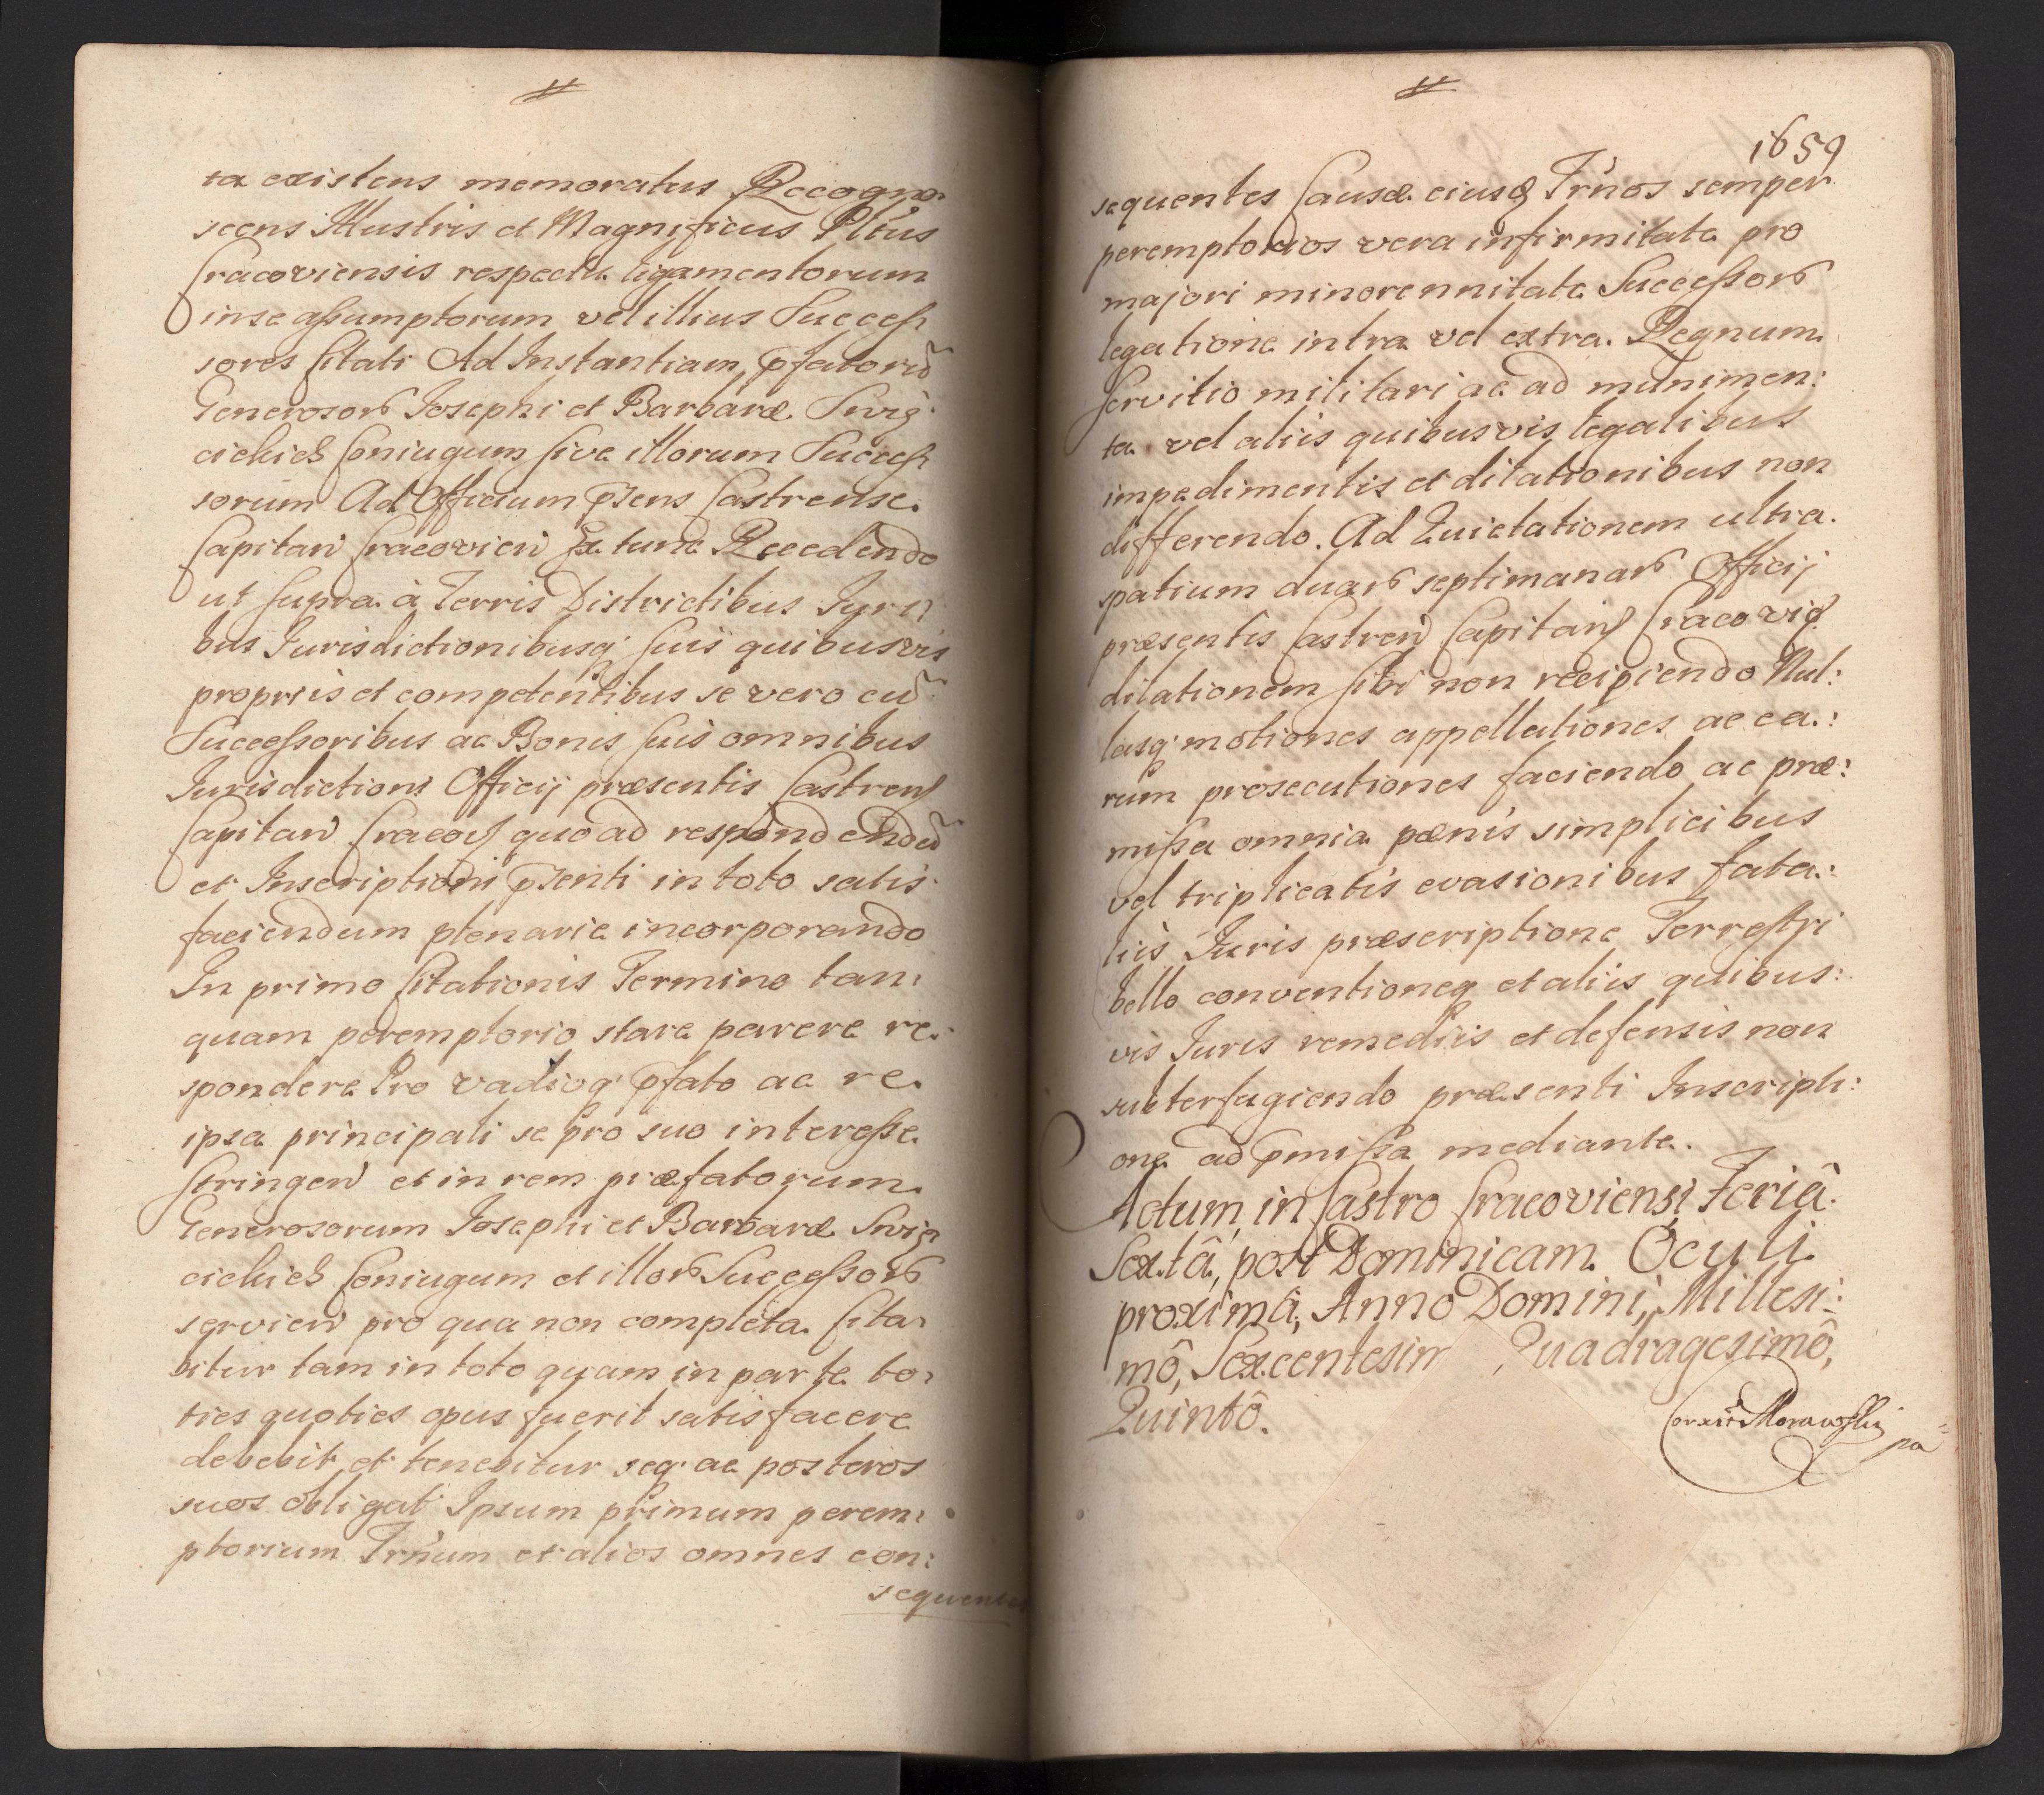 ta existens memoratus Recogno:
scens Illustris et Magnificus Pltũs
Cracoviensis respectu ligamentorum
in se assumptorum vel illius Succes:
sores Citati Ad Instantiam pfatorũ
Generosor Josephi et Barbaræ Swię:
cickich Coniugum sive illorum Succes:
sorum Ad Officium pñens Castrense
Capitan Cracovien Ex tunc Recedendo
ut supra à Terris Districtibus Juri:
bus Jurisdictionibusq suis quibusvis
propriis et competentibus se vero cũ
Successoribus ac Bonis suis omnibus
Jurisdictioni Officij præsentis Castren
Capitan Cracov quo ad respondendũ
et Inscriptioni pñenti in toto satis
faciendum plenarie incorporando
In primo Citationis Termino tan:
quam peremptorio stare parere re:
spondere Pro vadioq pfato ac re
ipsa principali se pro suo interesse
stringen et in rem præfatorum
Generosorum Josephi et Barbaræ Swię:
cickich Coniugum et illor Successor
servien pro qua non completa Cita:
bitur tam in toto quam in parte to:
ties quoties opus fuerit satisfacere
debebit et tenebitur seq ac posteros
suos obligat Ipsum primum perem:
ptorium Trnum et alios omnes con:
sequentes
1659
sequentes Causæ eiusq Trnos semper
peremptorios vera infirmitate pro
majori minorennitate Successor
legatione intra vel extra Regnum
servitio militari ac ad munimen:
ta vel aliis quibusvis legalibus
impedimentis et dilationibus non
differendo. Ad Quietationem ultra
spatium duar septimanar Officij
præsentis Castren Capitan Cracovien
dilationem sibi non recipiendo Nul:
lasq motiones appellationes ac ea:
rum prosecutiones faciendo ac præ:
missa omnia pænis simplicibus
vel triplicatis evasionibus fata:
liis Juris præscriptione Terrestri
bello conventioneq et aliis quibus:
vis Juris remediis et defensis non
subterfugiendo præsenti Inscripti:
one ad pmissa mediante.
Actum in Castro Cracoviensi Feriâ
Sextâ, post Dominicam Oculi
proximâ, Anno Domini, Millesi:
mô, Sexcentesim Quadragesimô,
Quintô.
Corexit Morawski